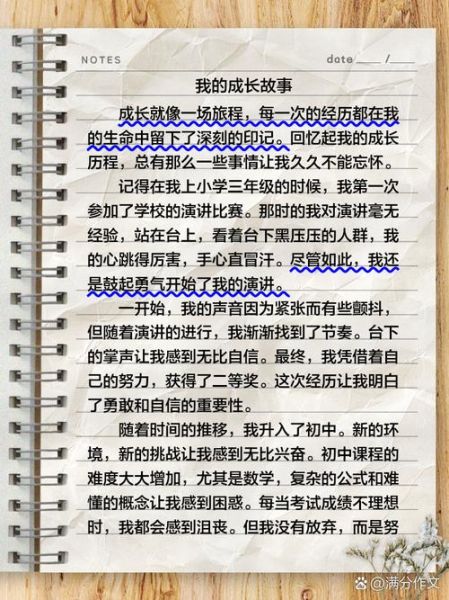 NOTES
date ____ /____
我的成长故事
成长就像一场旅程，每一次的经历都在我
的生命中留下了深刻的印记。回忆起我的成长
历程，总有那么一些事情让我久久不能忘怀。
记得在我上小学三年级的时候，我第一次
参加了学校的演讲比赛。那时的我对演讲毫无
经验，站在台上，看着台下黑压压的人群，我
的心跳得厉害，手心直冒汗。尽管如此，我还
是鼓起勇气开始了我的演讲。
一开始，我的声音因为紧张而有些颤抖，
但随着演讲的进行，我渐渐找到了节奏。台下
的掌声让我感到无比自信。最终，我凭借着自
己的努力，获得了二等奖。这次经历让我明白
了勇敢和自信的重要性。
随着时间的推移，我升入了初中。新的环
境，新的挑战让我感到无比兴奋。初中课程的
难度大大增加，尤其是数学，复杂的公式和难
懂的概念让我感到困惑。每当考试成绩不理想
时，我都会感到沮丧。但我没有放弃，而是努
@满分作文